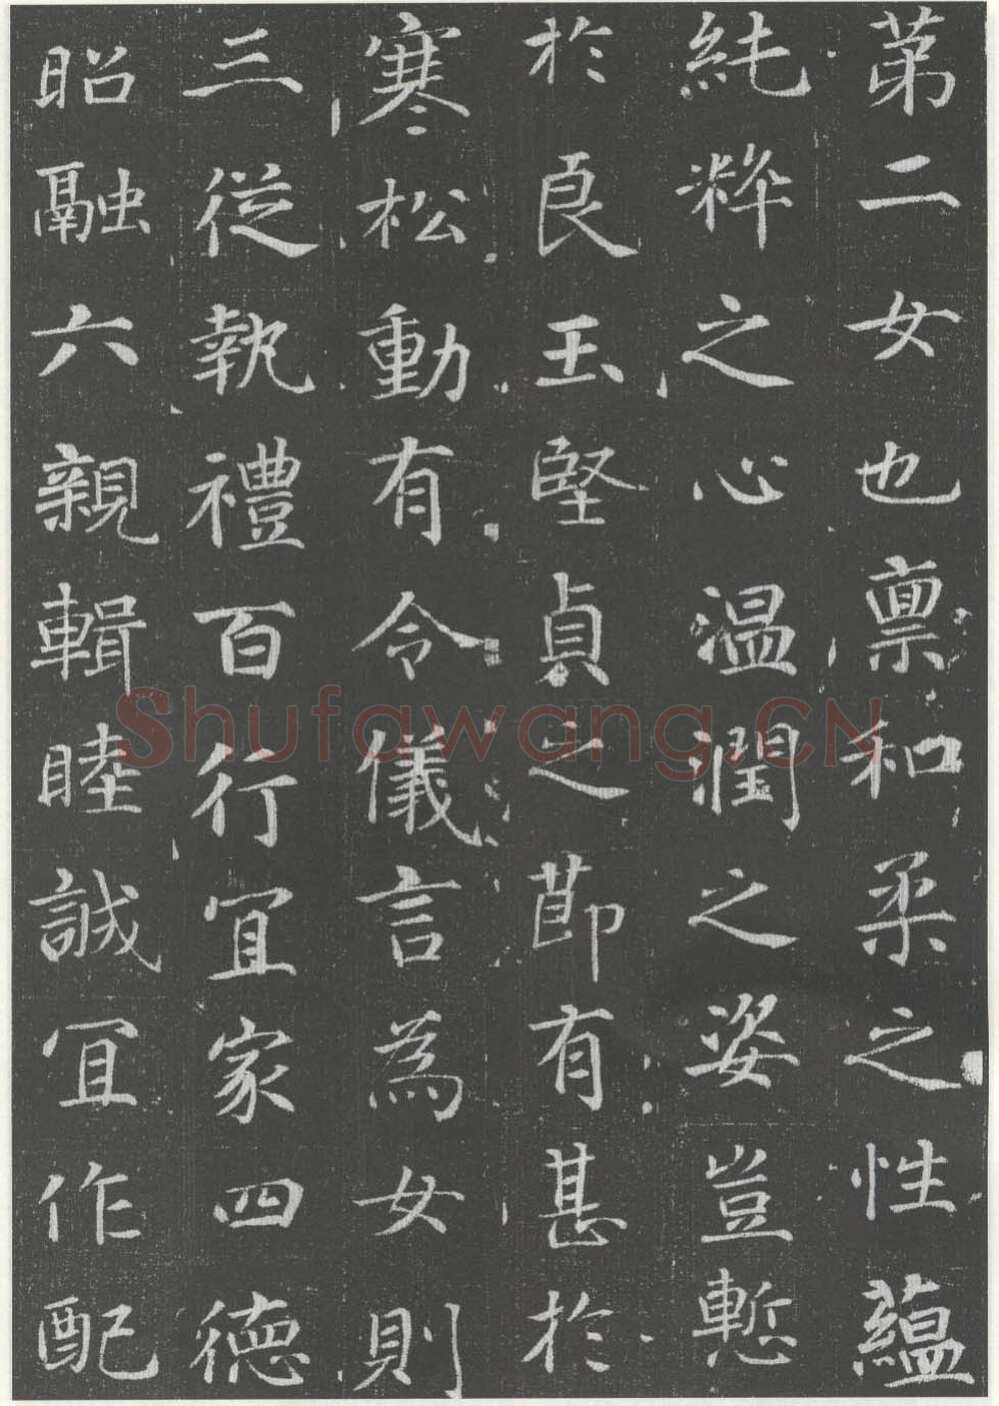 苐二女也禀和柔之性蘊
純粹之心温潤之姿豈慙
於良玉堅貞之莭有甚於
寒松動有令儀言為女則
三從執禮百行冝家四德
昭融六親輯睦誠冝作配
Shufawang.CN